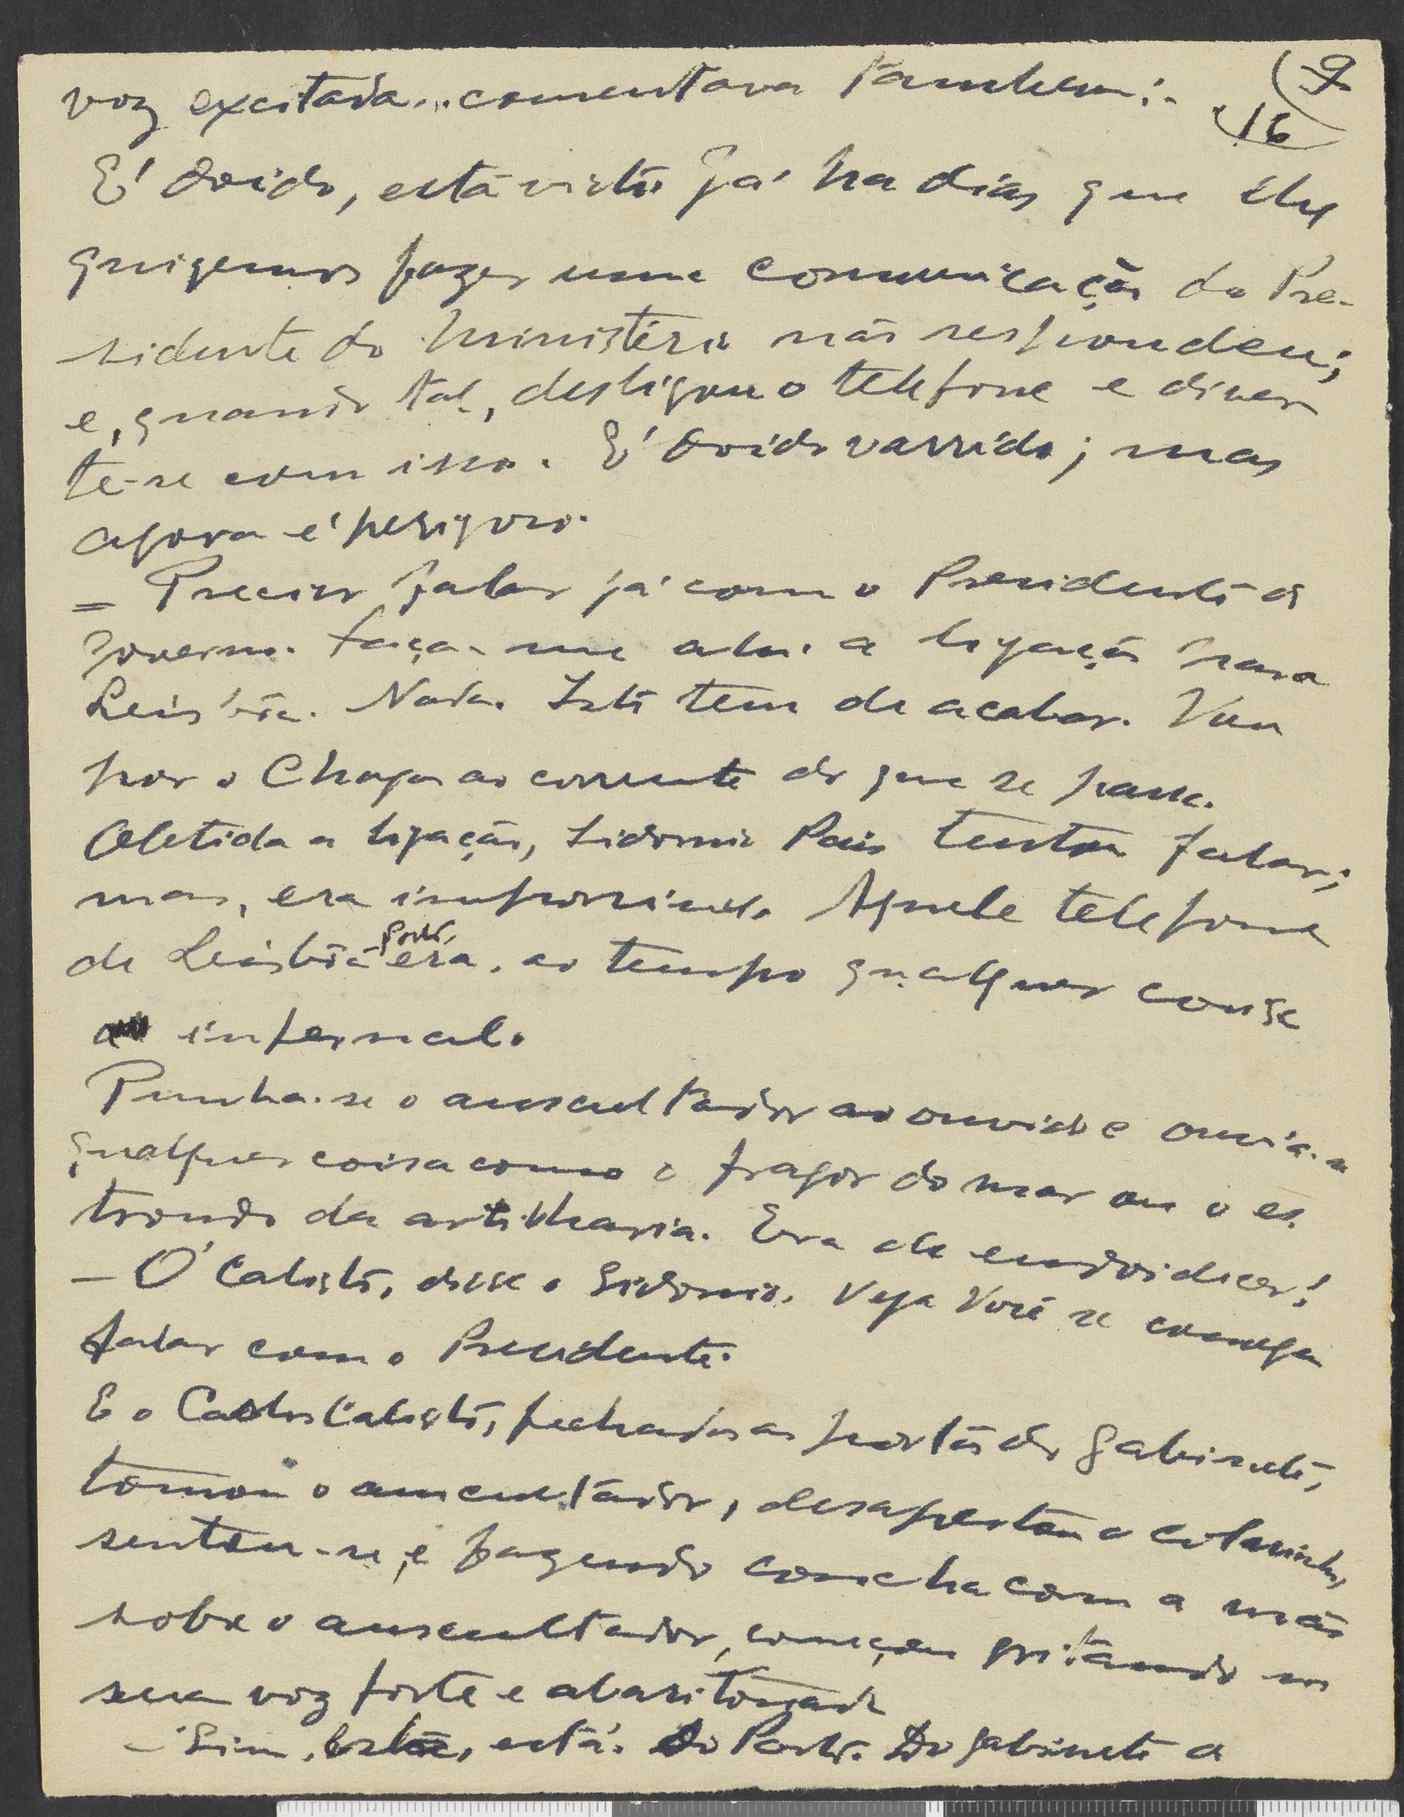 9
16
voz excitada... comentava tambem:-
E' doido, está visto. Já ha dias que lhe
quizemos fazer uma comunicação do Pre-
sidente do Ministério não respondeu;
e, quando tal, desligou o telefone e diver-
te-se com isso. E' doido varrido; mas
agora é perigoso.
= Preciso falar já com o Presidente do
Governo. Faça-me a ligação para
Leis'bôa. Nada. Isto tem de acabar. Vou
por o Chagas ao corrente do que se passa.
Obtida a ligação, Sidonio Pais tentou falar;
mas, era impossivel. Aquele telefone
de Leisbôa Porto, era, ao tempo qualquer cousa
infernal.
Punha-se o auscultador ao ouvido e ouvia-se
qualquer coisa como o fragor do mar ou o es-
trondo da artilharia. Era de endoidecer!
- O' Calisto, disse o Sidonio. Veja Você se consegue
falar com o Presidente.
E o Carlos Calisto, fechadas as portas do gabinete,
tomou o auscultador, desapertou o colarinho,
sentou-se, e fazendo concha com a mão
sobre o auscultador, começou gritando na
sua voz forte e abaritonada
- Sim, está. Do Porto. Do gabinete do